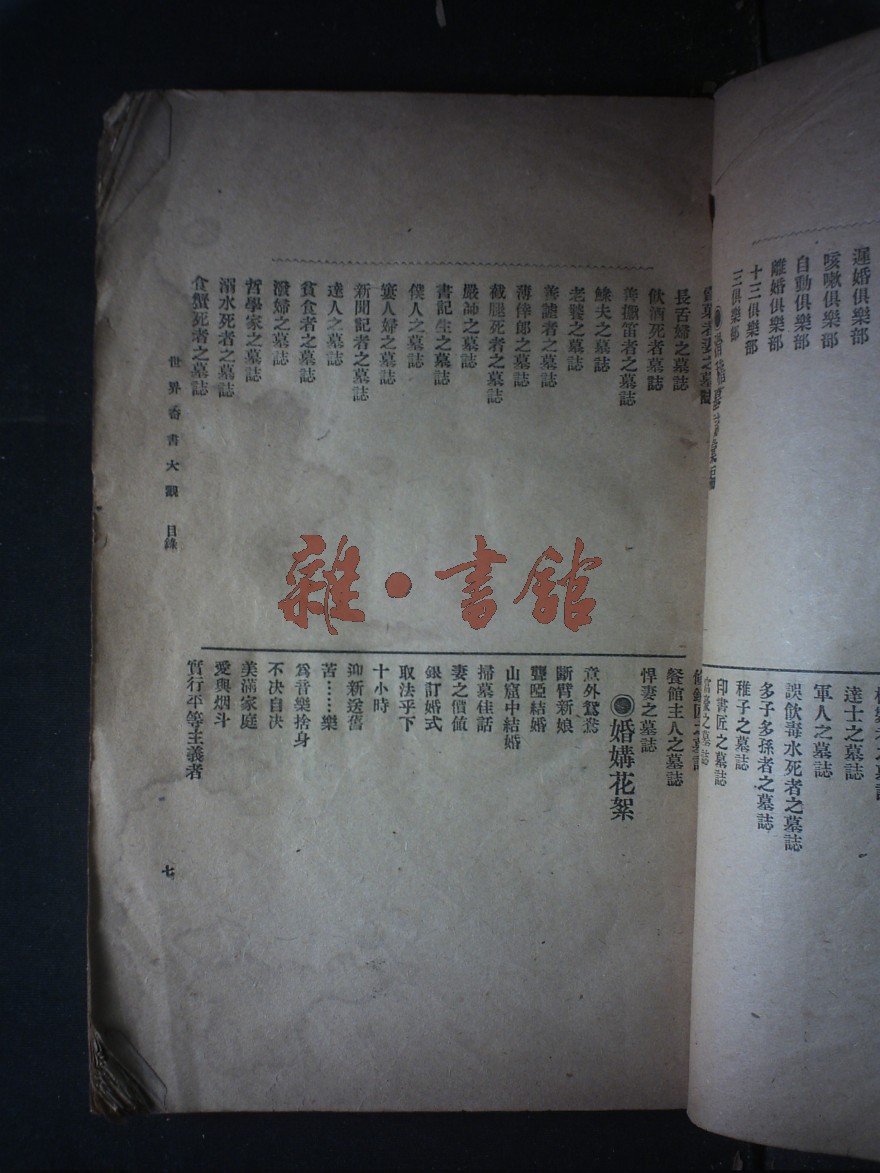 遲婚俱樂部
咳嗽俱樂部
自動俱樂部
離婚俱樂部
十三俱樂部
三俱樂部
達士之墓誌
軍人之墓誌
誤飲毒水死者之墓誌
多子多孫者之墓誌
稚子之墓誌
印書匠之墓誌
長舌婦之墓誌
飲酒死者墓誌
善擫笛者之墓誌
鰥夫之墓誌
老饕之墓誌
善謔者之墓誌
薄倖郎之墓誌
截腿死者之墓誌
嚴師之墓誌
書記生之墓誌
僕人之墓誌
窶人婦之墓誌
新聞記者之墓誌
達人之墓誌
貪食者之墓誌
潑婦之墓誌
哲學家之墓誌
溺水死者之墓誌
食蟹死者之墓誌
餐館主人之墓誌
悍妻之墓誌
婚媾花絮
意外鴛鴦
斷臂新娘
聾啞結婚
山窟中結婚
掃墓佳話
妻之價值
銀訂婚式
取法乎下
十小時
迎新送舊
苦……樂
爲音樂捨身
不決自決
美滿家庭
愛與烟斗
實行平等主義者
世界奇書大觀 目錄
七
雜·書館